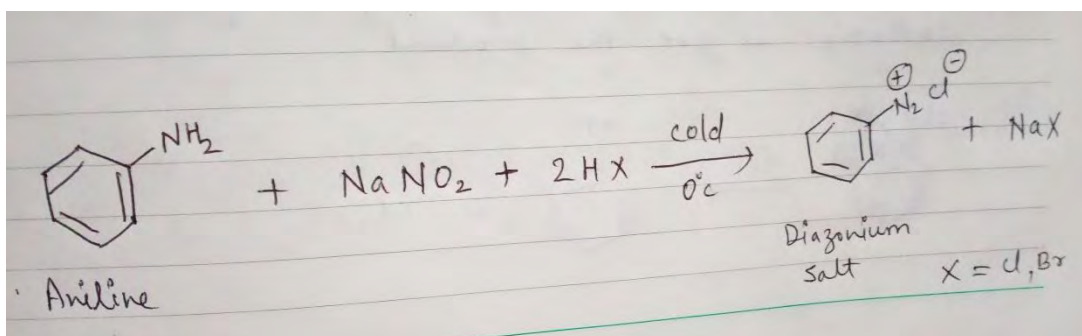 NH2 + NaNO2 + 2HX cold 0°c → N2 ⊕ Cl ⊖ + NaX
Aniline Diazonium salt X = Cl, Br